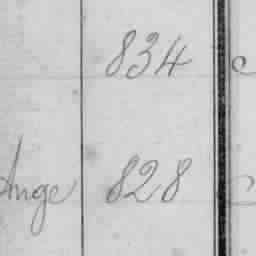 834
Ange 828